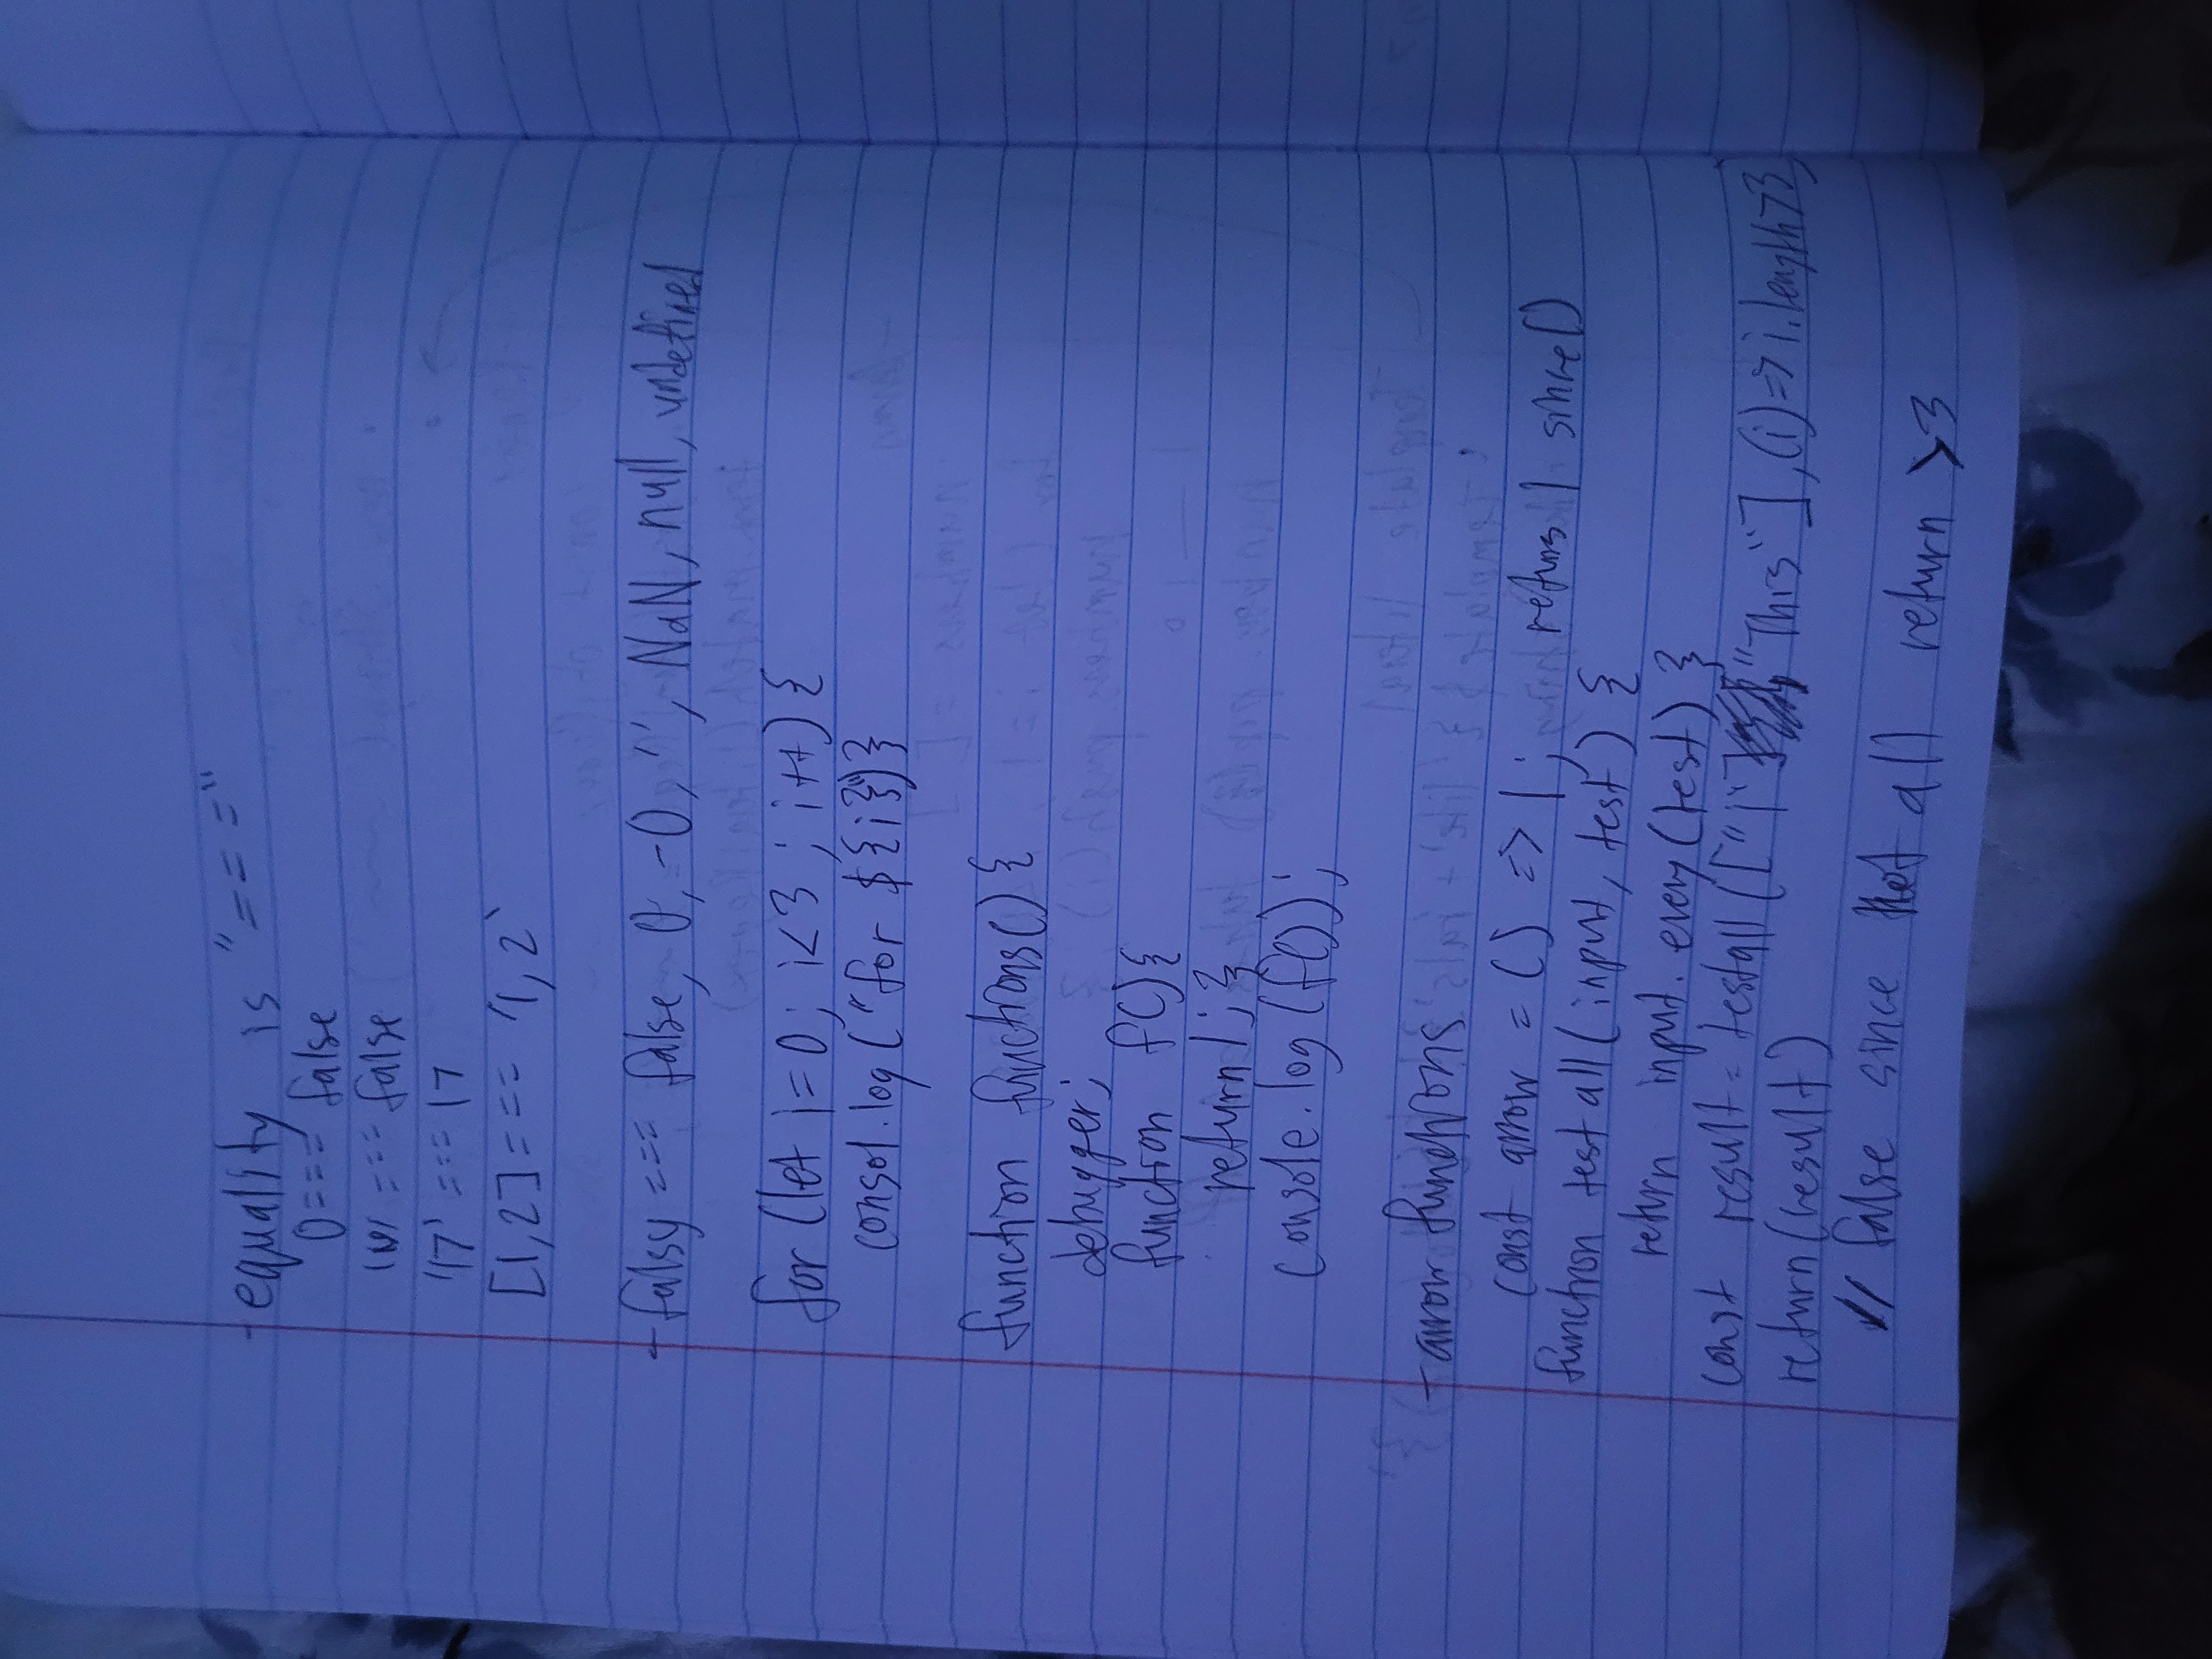 - equality is "==="
0 === false
=== false
'17' === 17
[1,2] === '1,2'
- falsy === false, 0, -0, '', NaN, null, undefined
for (let i=0; i<3; i++) {
consol.log("for ${i}")}
function functions() {
debugger;
function f(){
return 1; }
console.log(f());
- arrow functions
const arrow = () => 1; returns 1 since ()
function test all (input, test) {
return input.every(test) }
const result = testall(["i" "This"], (i) => i.length>3)
return(result)
// false since not all return >3